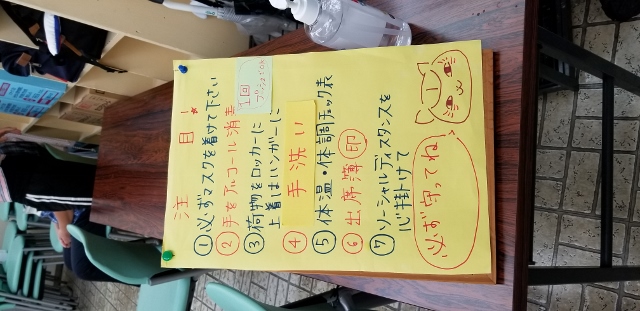 注目!
①必ずマスクを着けて下さい
②手をアルコール消毒
1回プッシュでOK
③荷物をロッカーに
上着はハンガーに
④手洗い
⑤体温・体調チェック表
⑥出席簿 印
⑦ソーシャルディスタンスを
心掛けて
必ず守ってね!